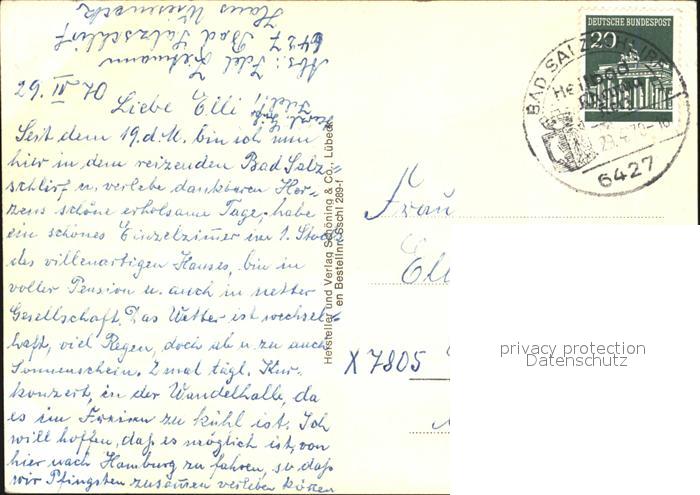 Abs.: Idel
6427 Bad Salzschlirf
Haus
29. IV. 70
Liebe Elli!
Seit dem 19. d. M. bin ich nun
hier in dem reizenden Bad Salz=
schlirf u. verlebe dankbaren Her-
zens schöne erholsame Tage, habe
ein schönes Einzelzimmer im 1. Stock
des villenartigen Hauses, bin in
voller Pension u. auch in netter
Gesellschaft. Das Wetter ist wechsel-
haft, viel Regen, doch ab u. zu auch
Sonnenschein. 2 mal tägl. Kur-
konzert, in der Wandelhalle, da
es im Freien zu kühl ist. Ich
will hoffen, daß es möglich ist, von
hier nach Hamburg zu fahren, so daß
wir Pfingsten zusammen verleben können
Hersteller und Verlag Schöning & Co., Lübeck
en Bestellnr. Sschl 289-I
DEUTSCHE BUNDESPOST
20
BAD SALZSCHLIRF
Heilbad
6427
Frau
Elli
X 7805
privacy protection
Datenschutz